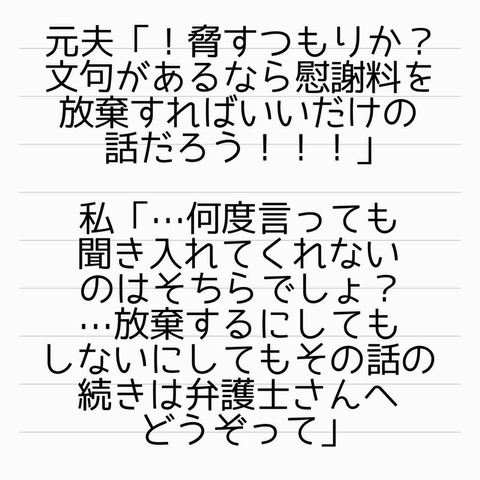 元夫「！脅すつもりか？
文句があるなら慰謝料を
放棄すればいいだけの
話だろう！！！」
私「…何度言っても
聞き入れてくれない
のはそちらでしょ？
…放棄するにしても
しないにしてもその話の
続きは弁護士さんへ
どうぞって」